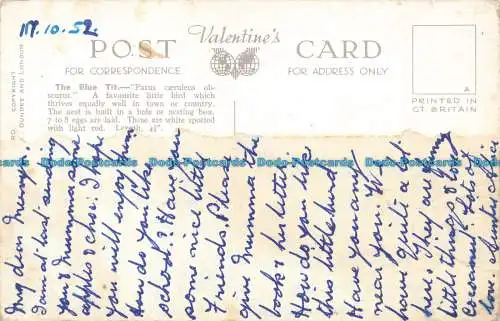 17.10.52.
POST Valentine's CARD
FOR CORRESPONDENCE FOR ADDRESS ONLY
COPYRIGHT
DUNDEE AND LONDON
The Blue Tit.—"Parus cæruleus ob-
scurus." A favourite little bird which
thrives equally well in town or country.
The nest is built in a hole or nesting box.
7 to 8 eggs are laid. These are white spotted
with light red. Length, 4½".
A
PRINTED IN
GT. BRITAIN
My dear
I am at last sending
you & Mummy some
apples &
you will enjoy them
How do you like
school? Have you
some nice little
Friends Please
give Mummie the
book & her letter
How do you like
this little bird
Have you any
near you We
have quite a lot
here, They are funny
little things & love
Cocoanut. Lots of
love Auntie
Postcards